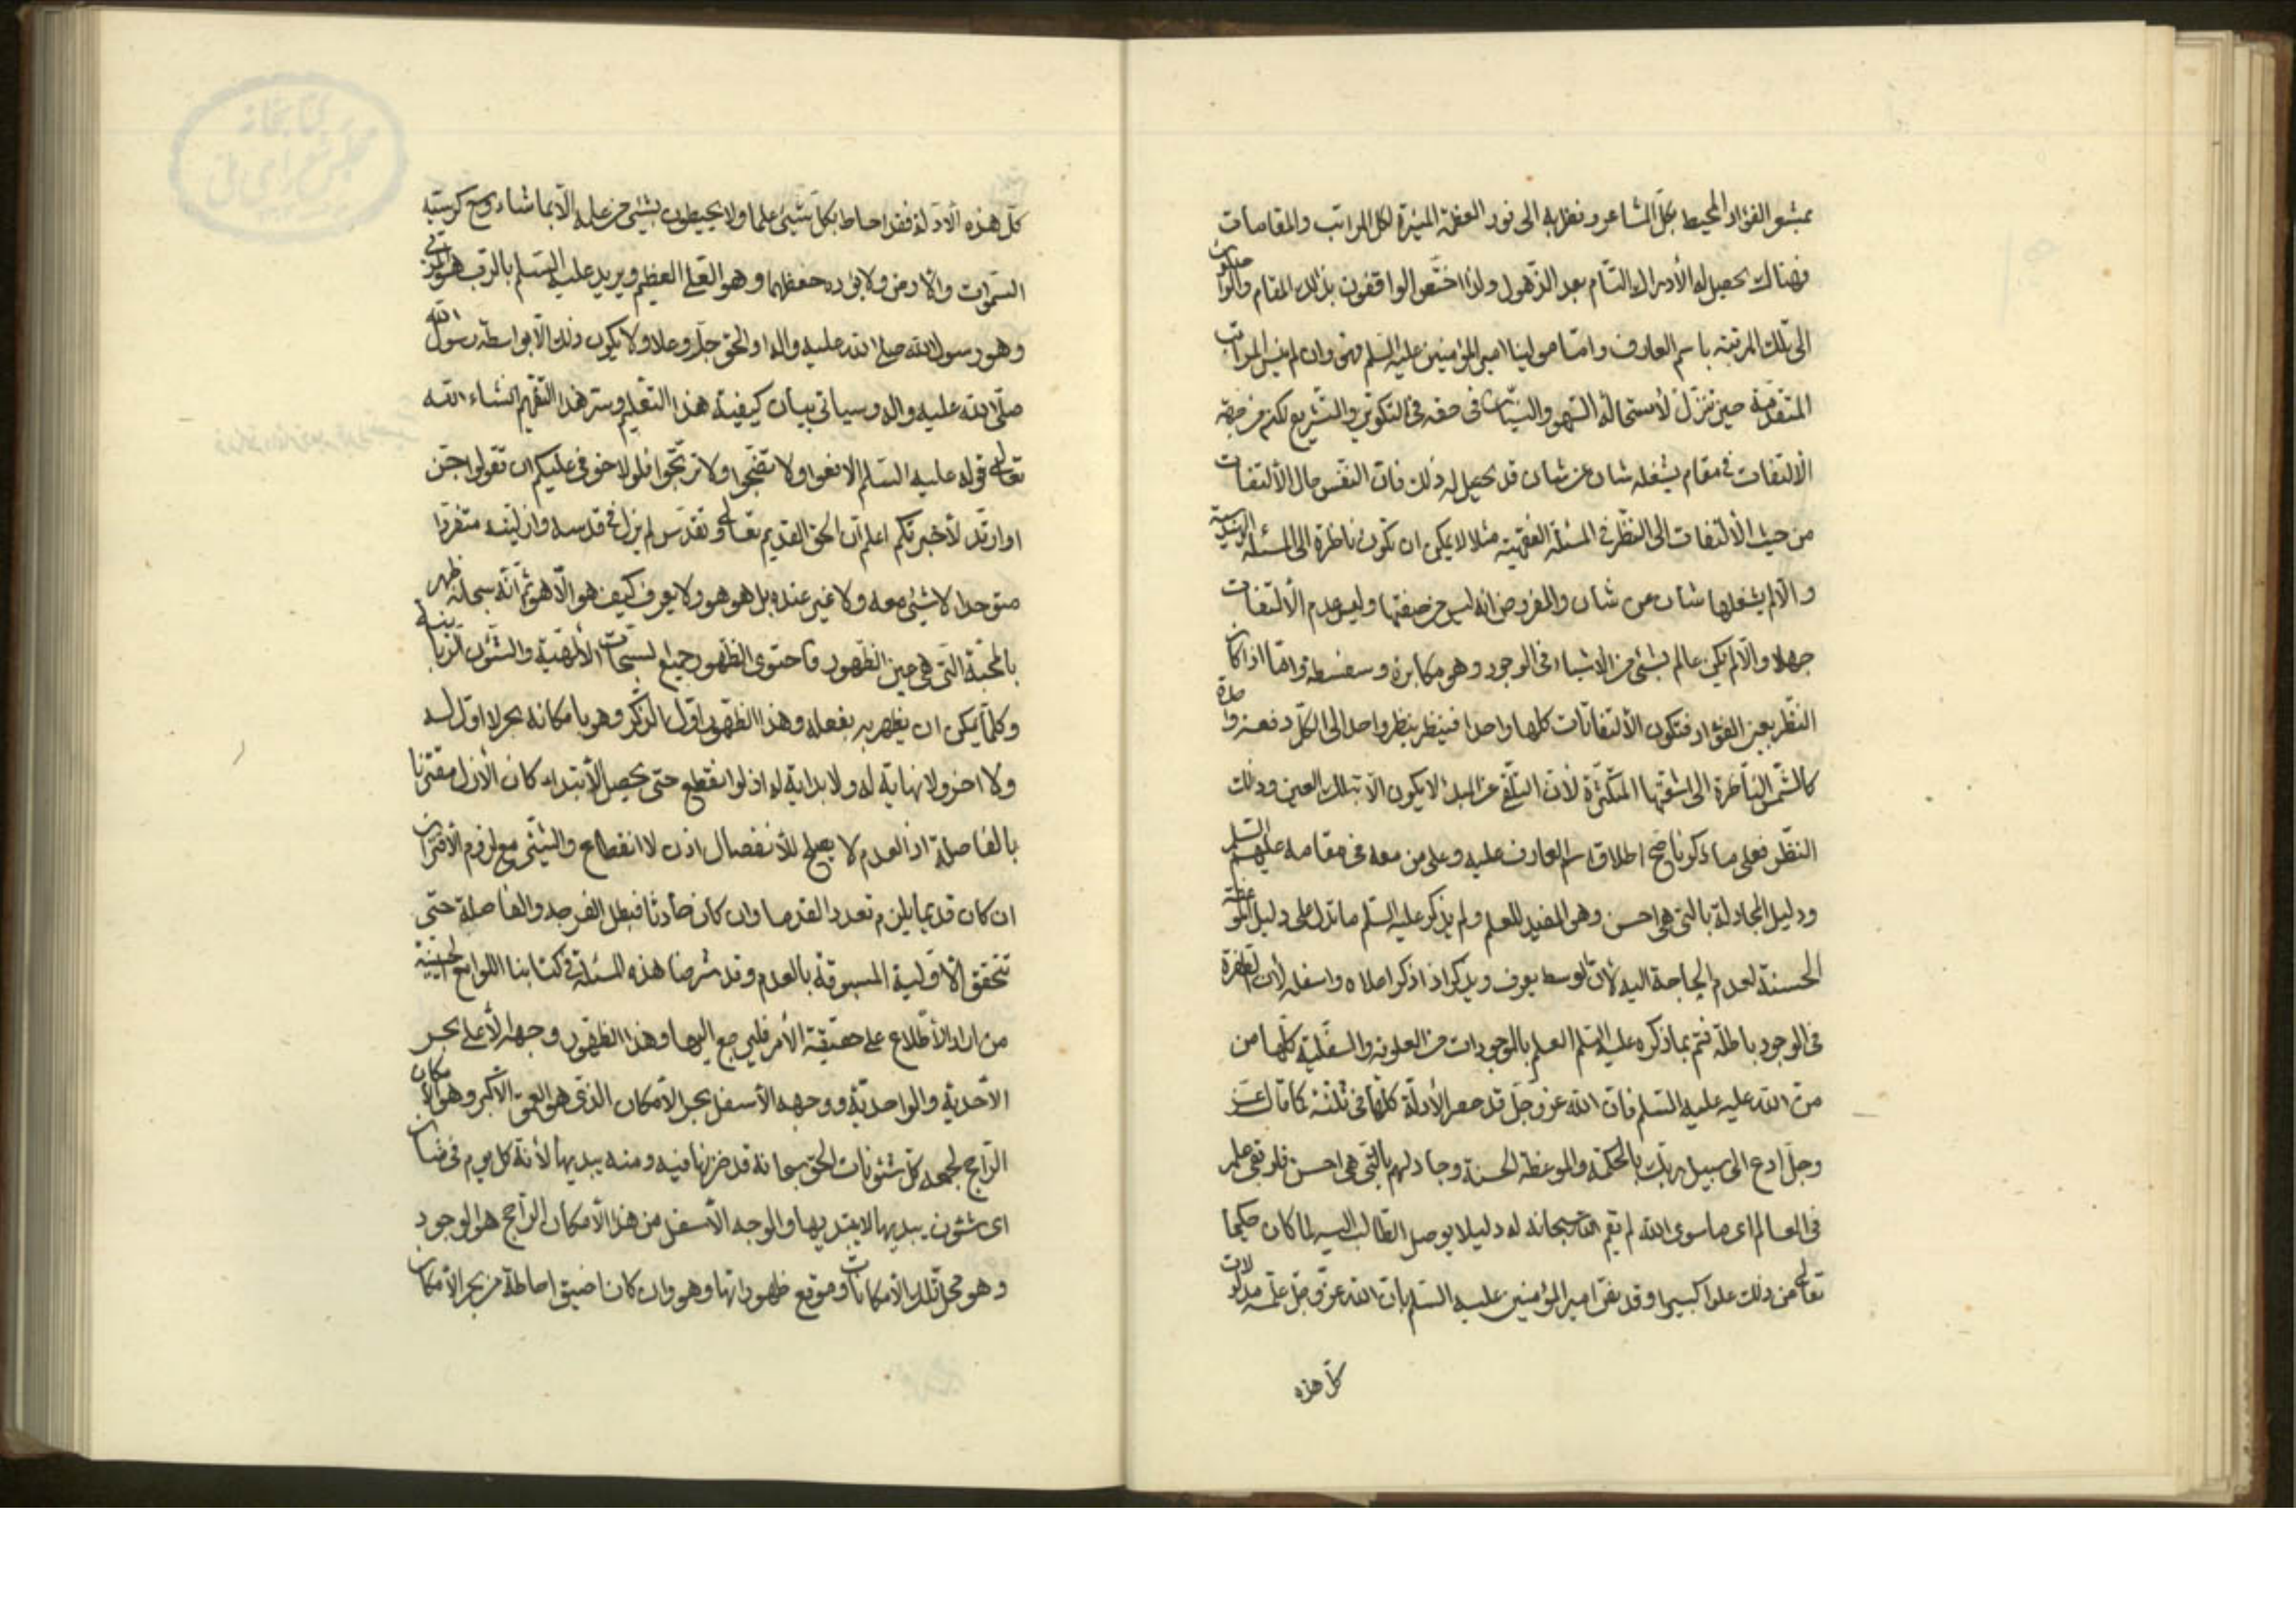 بمشعر الفؤاد المحيط بكل المشاعر ونظر به الى نور العظمة المنيرة لكل المراتب والمقامات
فهناك يحصل له الأدراك التام بعد الذهول ولذا اختص الواقفون بذلك المقام والواصلون
الى تلك المرتبة باسم العارف واما مولينا امير المؤمنين عليه السلم فهو وان لم ينس المراتب
المتقدمة حين تنزل لأستحالة السهو والنسيان فى حقه فى التكوين والتشريع لكنه من جهة
الألتفات فى مقام يشغله شان عن شان قد يحصل له ذلك فان النفس حال الألتفات
من حيث الألتفات الى النظر فى المسئلة الفقهية مثلا لا يمكن ان تكون ناظرة الى المسئلة الهندسية
والا لم يشغلها شان عن شان والمفروض انه ليس من صفتها وليس عدم الألتفات
جهلا والا لم يكن عالم بشئ من الاشياء فى الوجود وهو مكابرة وسفسطة واما اذا كان
النظر بعين الفؤاد فتكون الألتفاتات كلها واحدا فينظر بنظر واحد الى الكل دفعة واحدة
كالشمس الناظرة الى اشعتها المتكثرة لأن التلقى عن المبدء لا يكون الا بتلك العين وذلك
النظر فعلى ما ذكرنا صح اطلاق اسم العارف عليه وعلى من معه فى مقامه عليهم السلم
ودليل المجادلة بالتى هى احسن وهو المفيد للعلم ولم يذكر عليه السلم ما تدل على دليل الموعظة
الحسنة لعدم الحاجة اليه لأن الوسط يعرف ويذكر اذا ذكر اعلاه واسفله لأن الطفرة
فى الوجود باطلة فتم بما ذكره عليه السلم العلم بالموجودات من العلوية والسفلية كلها من
من الله عليه عليه السلم فان الله عز وجل قد حصر الأدلة كلها فى ثلثة كما قال عز
وجل ادع الى سبيل ربك بالحكمة والموعظة الحسنة وجادلهم بالتى هى احسن فلو بقى علم
فى العالم اى ما سوى الله لم يقم الله سبحانه له دليلا يوصل الطالب اليه لما كان حكيما
تعالى من ذلك علوا كبيرا وقد نص امير المؤمنين عليه السلم بان الله عز وجل علمه مدلولات
كل هذه
كل هذه الأدلة فقد احاط بكل شيئ علما ولا يحيطون بشيئ من علمه الا بما شاء وسع كرسيه
السموات والأرض ولا يؤده حفظهما وهو العلى العظيم ويريد عليه السلم بالرب هو المربى
وهو رسول الله صلى الله عليه واله او الحق جل وعلا ولا يكون ذلك الا بواسطة رسول الله
صلى الله عليه واله وسياتى بيان كيفية هذا التعليم وسر هذا التفهيم انشاء الله
تعالى قوله عليه السلم الا فعوا ولا تضجوا ولا ترتجوا فلولا خوفى عليكم ان تقولوا جن
او ارتد لأخبرتكم اعلم ان الحق القديم تعالى وتقدس لم يزل فى قدسه وازليته متفردا
متوحدا لا شيئ معه ولا غير عنده بل هو هو ولا يعرف كيف هو الا هو ثم انه سبحانه ظهر
بالمحبة التى هى حين الظهور واحتوى الظهور جميع السبحات الألهية والشئون الربانية
وكلما يمكن ان يظهر به بفعله وهذا الظهور اول الذكر وهو بامكانه بحر لا اول له
ولا اخر ولا نهاية له ولا بداية له اذ لو انقطع حتى يحصل الأبتداء كان الأزل مقترنا
بالفاصلة اذ العدم لا يصلح للأنفصال اذن لا انقطاع والشيئ مع لزوم الأقتران
ان كان قديما يلزم تعدد القدماء وان كان حادثا فبطل الفرجه والفاصلة حتى
تتحقق الأولية المسبوقة بالعدم وقد شرحنا هذه المسئلة فى كتابنا اللوامع الحسينية
من اراد الأطلاع على حقيقة الأمر فليرجع اليها وهذا الظهور وجهه الأعلى بحر
الأحدية والواحدية ووجهه الأسفل بحر الأمكان الذى هو العمق الأكبر وهو الأمكان
الراجح لجمعه كل شئونات الحق سبحانه قد خزنها فيه ومنه يبديها لأنه كل يوم فى شان
اى شئون يبديها لا يبتديها والوجه الأسفل من هذا الأمكان الراجح هو الوجود
وهو محل تلك الأمكانات وموقع ظهوراتها وهو وان كان اضيق احاطة من بحر الأمكان
كتابخانه
مجلس شوراى ملى